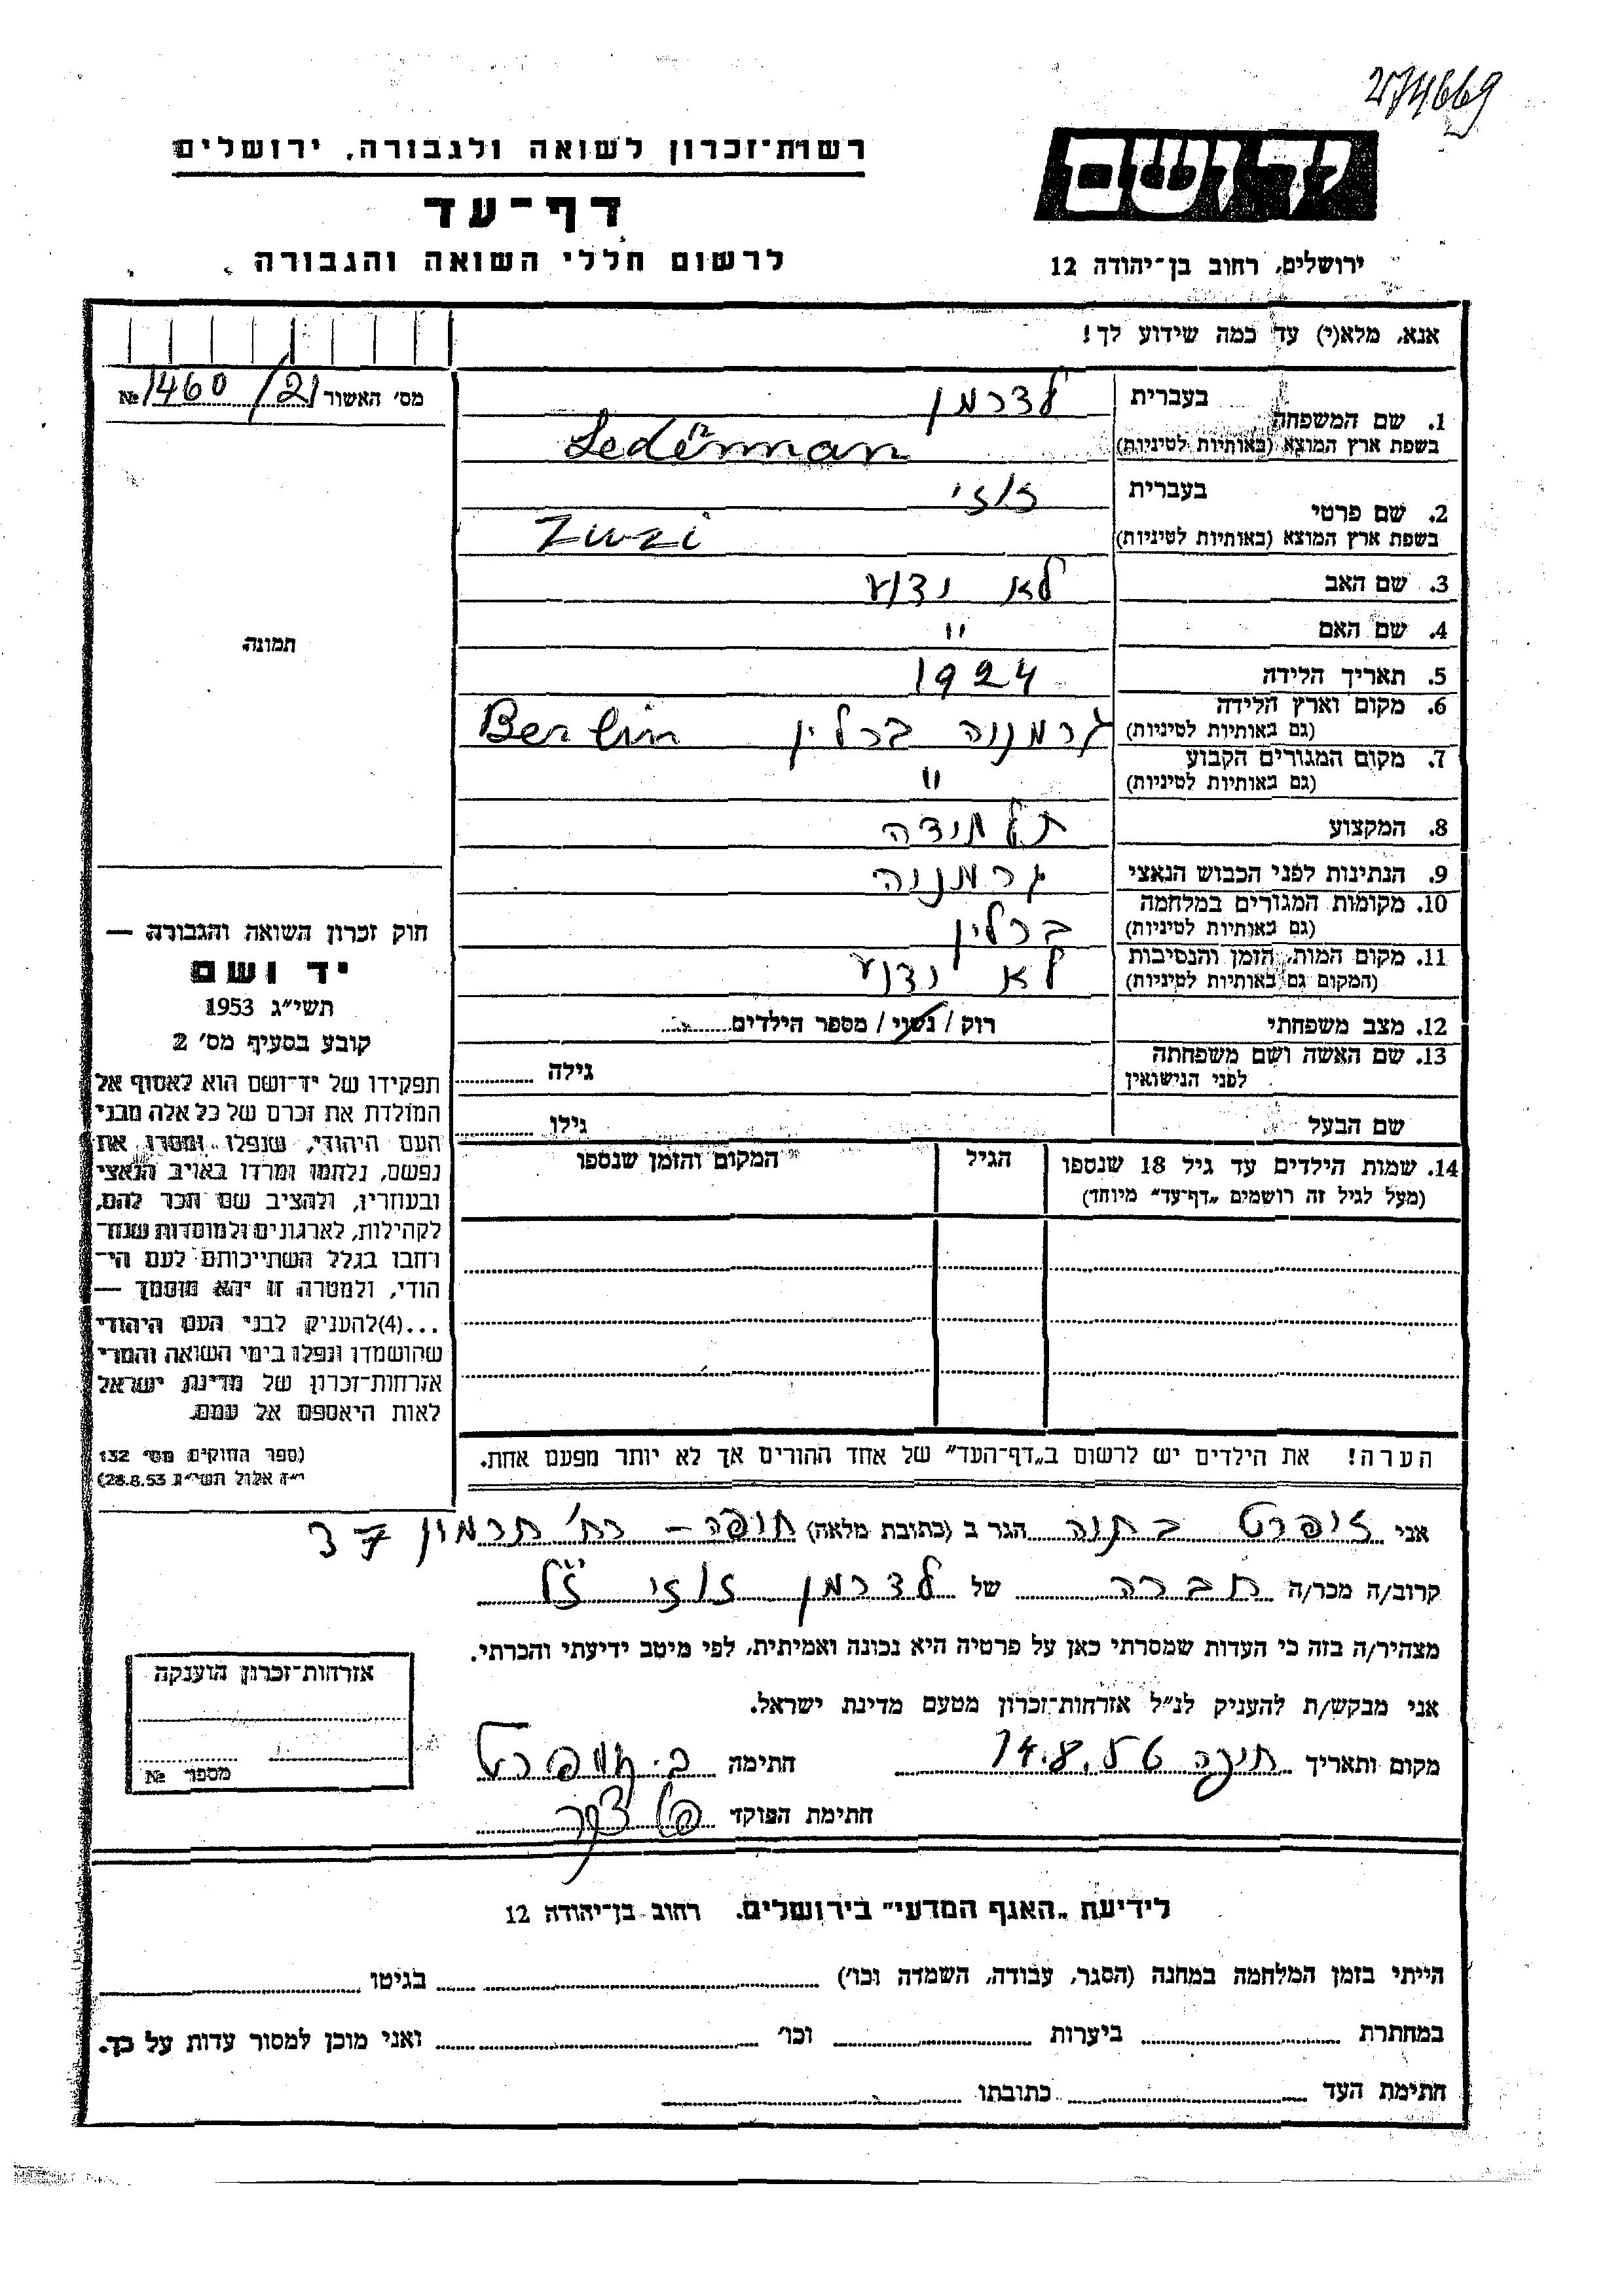 274669
יד ושם
ירושלים, רחוב בן־יהודה 12
רשות־זכרון לשואה ולגבורה, ירושלים
דף־עד
לרשום חללי השואה והגבורה
אנא, מלא(י) עד כמה שידוע לך!
מס׳ האשור 1460/21 №
1. שם המשפחה בעברית לדרמן
בשפת ארץ המוצא (באותיות לטיניות) Lederman
2. שם פרטי בעברית זוזי
בשפת ארץ המוצא (באותיות לטיניות) Zuzi
3. שם האב לא ידוע
4. שם האם "
5. תאריך הלידה 1924
6. מקום וארץ הלידה גרמניה ברלין Berlin
(גם באותיות לטיניות)
7. מקום המגורים הקבוע "
(גם באותיות לטיניות)
8. המקצוע תלמידה
9. הנתינות לפני הכבוש הנאצי גרמניה
10. מקומות המגורים במלחמה ברלין
(גם באותיות לטיניות)
11. מקום המות, הזמן והנסיבות לא ידוע
(המקום גם באותיות לטיניות)
12. מצב משפחתי רוק / נשוי / מספר הילדים
13. שם האשה ושם משפחתה גילה
לפני הנישואין
שם הבעל גילו
14. שמות הילדים עד גיל 18 שנספו הגיל המקום והזמן שנספו
(מעל לגיל זה רושמים „דף־עד" מיוחד)
הערה! את הילדים יש לרשום ב„דף־העד" של אחד ההורים אך לא יותר מפעם אחת.
תמונה
חוק זכרון השואה והגבורה —
יד ושם
תשי״ג 1953
קובע בסעיף מס׳ 2
תפקידו של יד־ושם הוא לאסוף אל
המולדת את זכרם של כל אלה מבני
העם היהודי, שנפלו ומסרו את
נפשם, נלחמו ומרדו באויב הנאצי
ובעוזריו, ולהציב שם וזכר להם,
לקהילות, לארגונים ולמוסדות שנח־
רחבו בגלל השתייכותם לעם הי־
הודי, ולמטרה זו יהא מוסמך —
...(4)להעניק לבני העם היהודי
שהושמדו ונפלו בימי השואה והמרי
אזרחות־זכרון של מדינת ישראל
לאות היאספם אל עמם.
(ספר החוקים מס׳ 132
י״ז אלול תשי״ג 28.8.53)
אני זיפרט בתיה הגר ב (כתובת מלאה) חיפה – רח׳ חרמון 37
קרוב/ה מכר/ה חברה של לדרמן זוזי ז״ל
מצהיר/ה בזה כי העדות שמסרתי כאן על פרטיה היא נכונה ואמיתית, לפי מיטב ידיעתי והכרתי.
אני מבקש/ת להעניק לנ״ל אזרחות־זכרון מטעם מדינת ישראל.
מקום ותאריך חיפה 14.8.56 חתימה
חתימת הפוקד
אזרחות־זכרון הוענקה
מספר №
לידיעת „האגף המדעי" בירושלים. רחוב בן־יהודה 12
הייתי בזמן המלחמה במחנה (הסגר, עבודה, השמדה וכו׳) בגיטו
במחתרת ביערות וכו׳ ואני מוכן למסור עדות על כך.
חתימת העד כתובתו